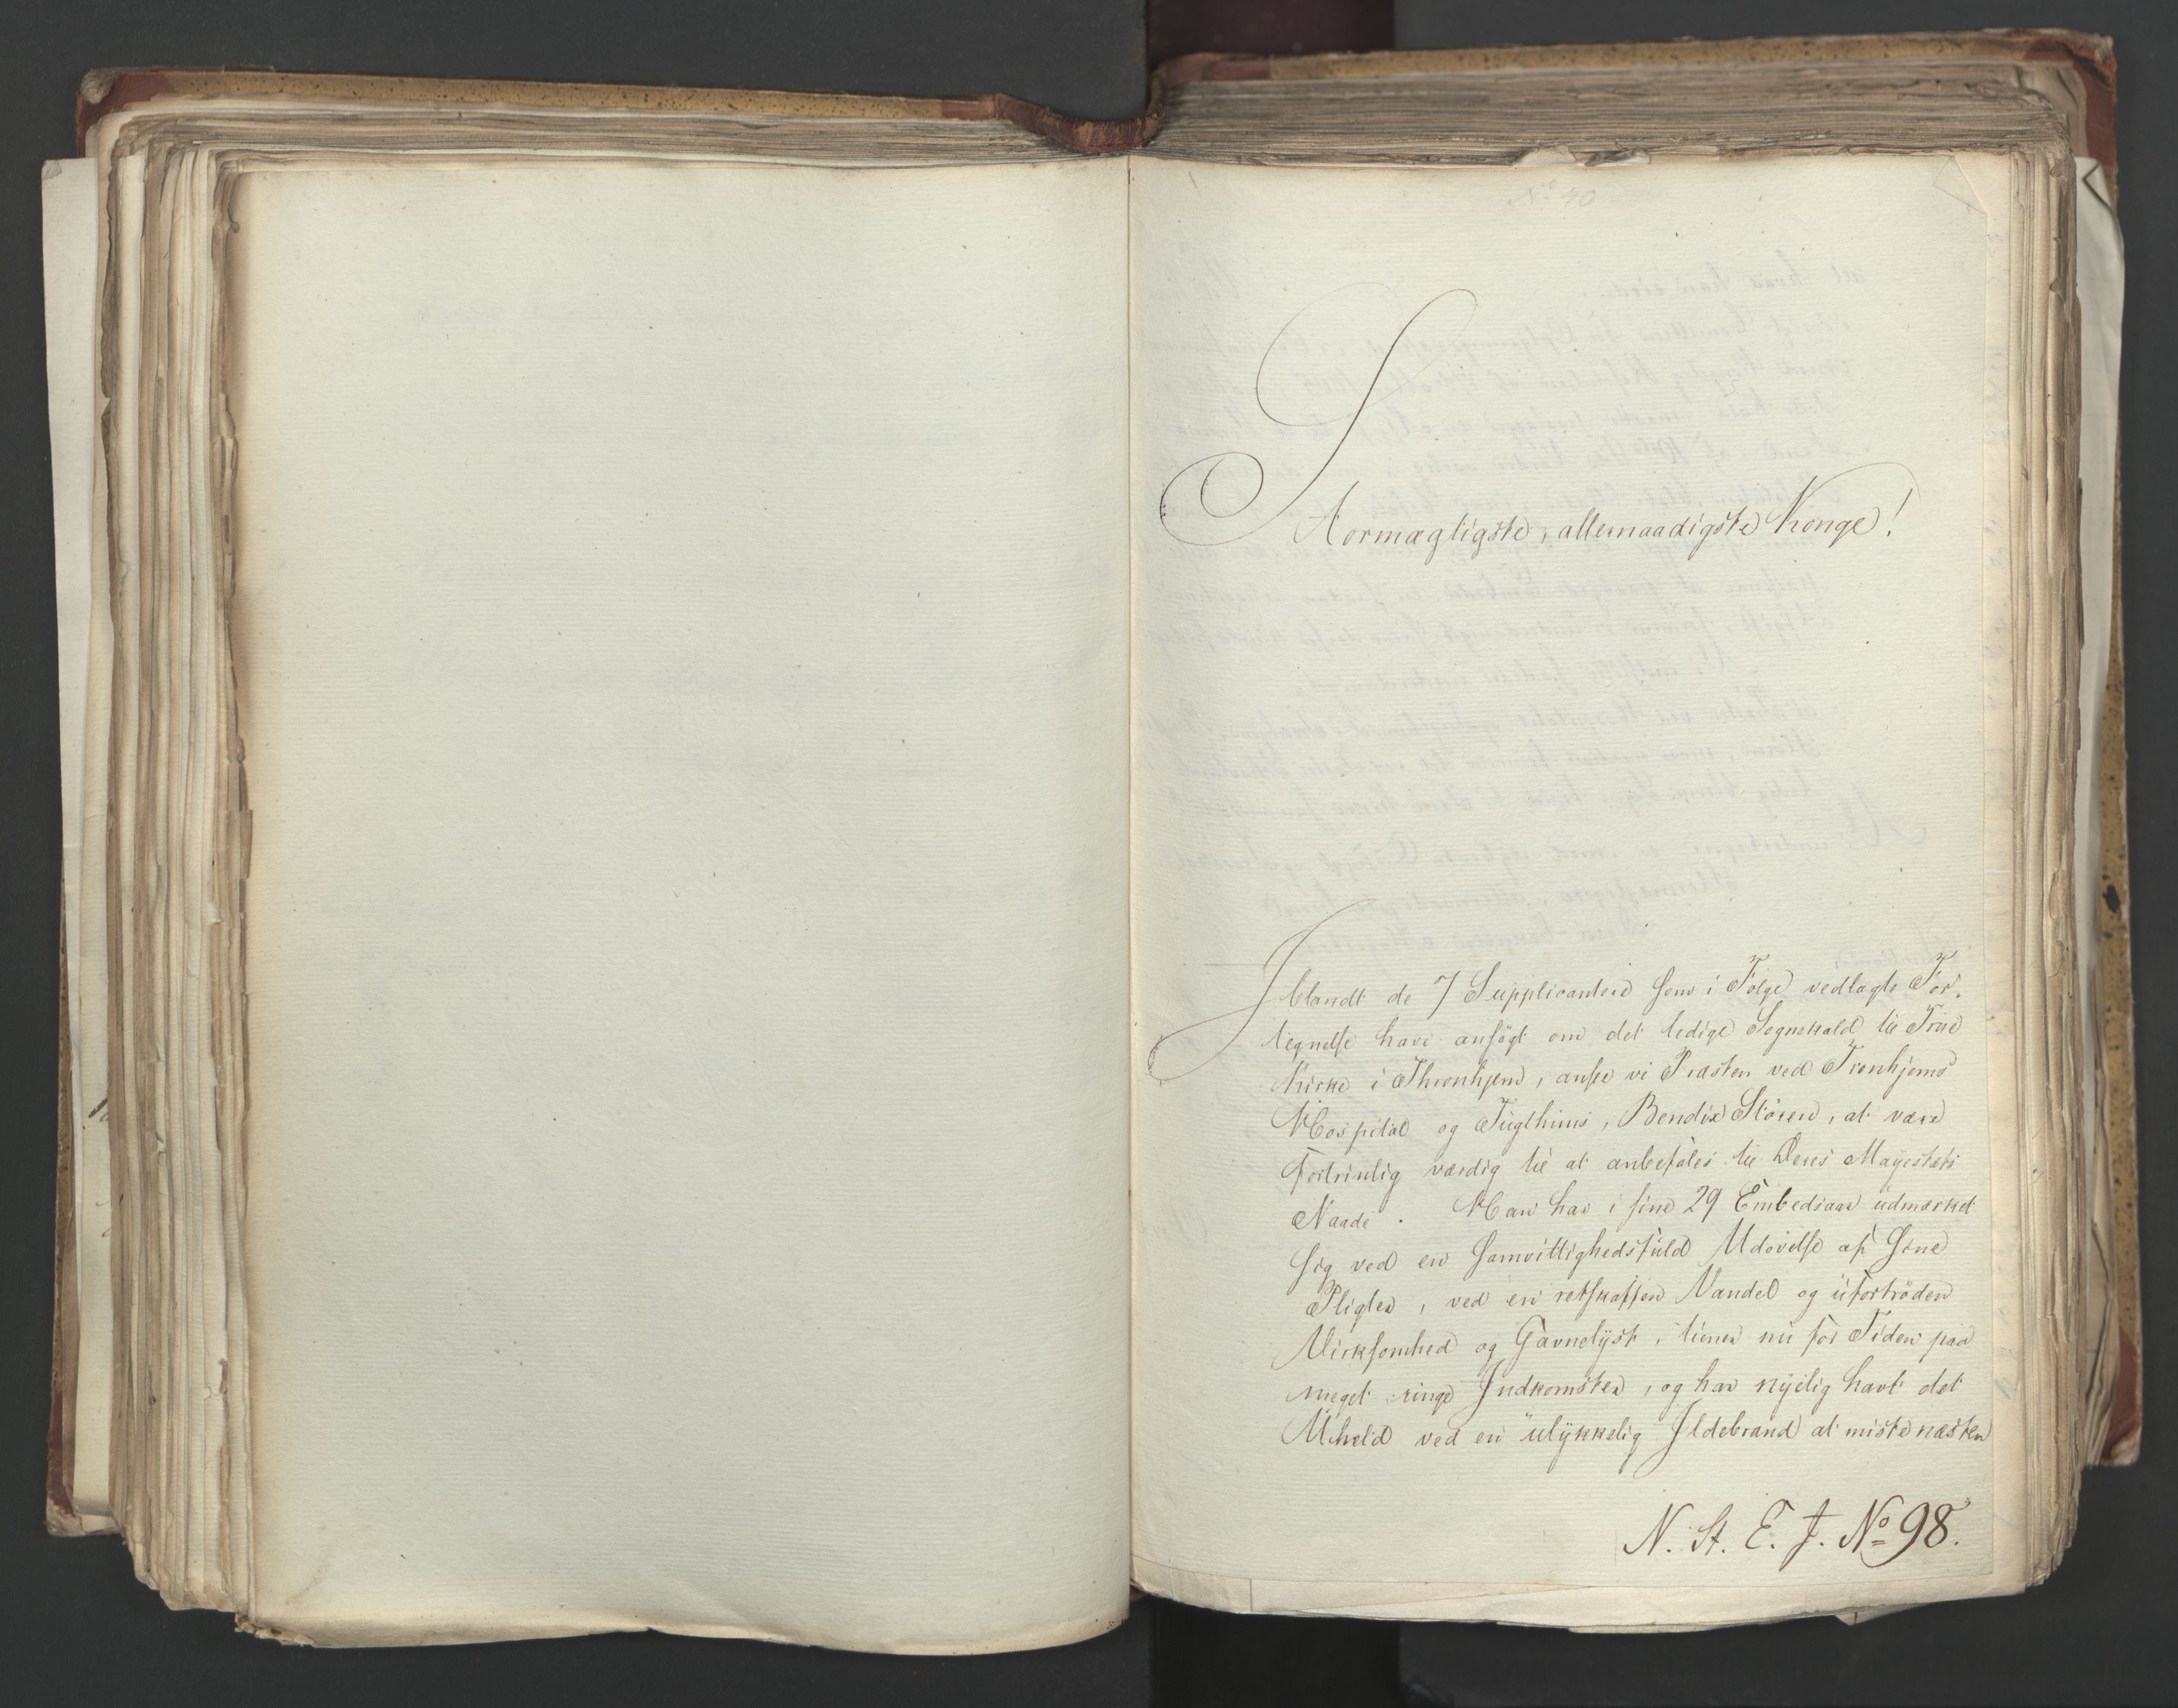 No 40
Stormægtigste, allernaadigste Konge!
Iblandt de 7 Supplicantere som i Følge vedlagte For-
tegnelse have ansøgt om det ledige Sognekald til Frue
Kirke i Thronhjem, ansee vi Præsten ved Tronhjems
Hospital og Tugthuus, Bendix Stören, at være
fortrinlig værdig til at anbefales til Deres Mayestæts
Naade. Han har i sine 29 Embedsaar udmærket
sig ved en samvittighedsfuld Udøvelse af sine
Pligter, ved en retskaffen Vandel og ufortröden
Virksomhed og Gavnelyst, tiener nu for Tiden paa
meget ringe Indkomster, og har nyelig havt det
Uheld ved en ulykkelig Ildebrand at miste næsten
N. St. E. J. No 98.